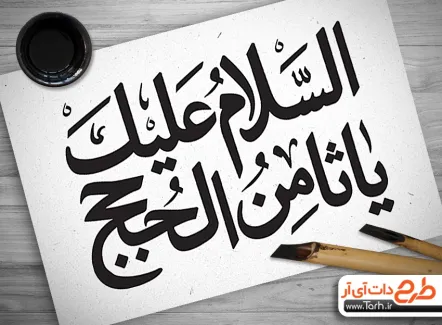 السَّلامُ عَلَيكَ
يا ثامِنُ الحُجَج
طرح دات آی آر
www.Tarh.ir